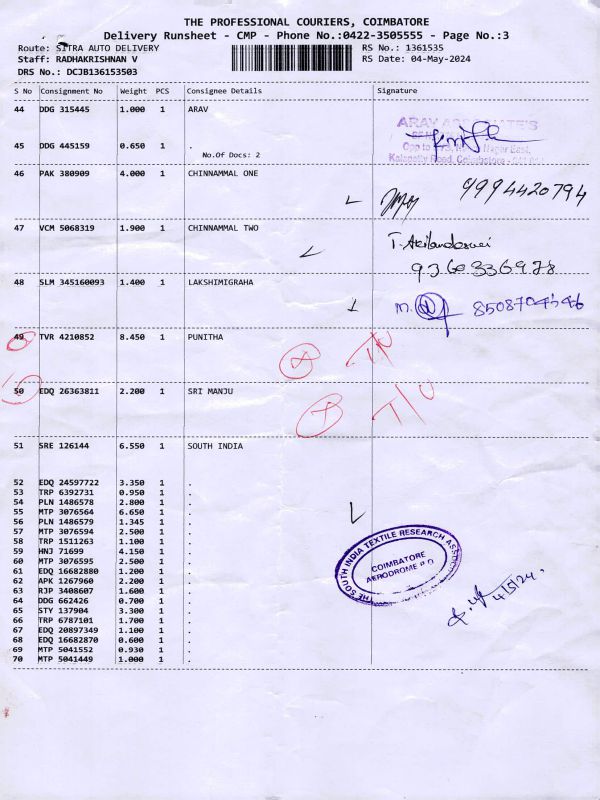 THE PROFESSIONAL COURIERS, COIMBATORE
Delivery Runsheet - CMP - Phone No.:0422-3505555 - Page No.:3
Route: SITRA AUTO DELIVERY RS No.: 1361535
Staff: RADHAKRISHNAN V RS Date: 04-May-2024
DRS No.: DCJB136153503
S No Consignment No Weight PCS Consignee Details Signature
44 DDG 315445 1.000 1 ARAV
ARAV ASSOCIATE'S
45 DDG 445159 0.650 1 .
No.Of Docs: 2
Kalapatty Road, Coimbatore
46 PAK 380909 4.000 1 CHINNAMMAL ONE 9994420794
47 VCM 5068319 1.900 1 CHINNAMMAL TWO T. Akilandeswei
9360336978
48 SLM 345160093 1.400 1 LAKSHIMIGRAHA
m. 8508704546
49 TVR 4210852 8.450 1 PUNITHA
50 EDQ 26363811 2.200 1 SRI MANJU T/O
51 SRE 126144 6.550 1 SOUTH INDIA
52 EDQ 24597722 3.350 1 .
53 TRP 6392731 0.950 1 .
54 PLN 1486578 2.800 1 .
55 MTP 3076564 6.650 1 .
56 PLN 1486579 1.345 1 .
57 MTP 3076594 2.500 1 .
58 TRP 1511263 1.100 1 .
59 HNJ 71699 4.150 1 .
60 MTP 3076595 2.500 1 .
61 EDQ 16682880 1.200 1 .
62 APK 1267960 2.200 1 .
63 RJP 3408607 1.600 1 .
64 DDG 662426 0.700 1 .
65 STY 137904 3.300 1 .
66 TRP 6787101 1.700 1 .
67 EDQ 20897349 1.100 1 .
68 EDQ 16682870 0.600 1 .
69 MTP 5041552 0.930 1 .
70 MTP 5041449 1.000 1 .
THE SOUTH INDIA TEXTILE RESEARCH ASSOC
COIMBATORE
AERODROME P.O
4/5/24.